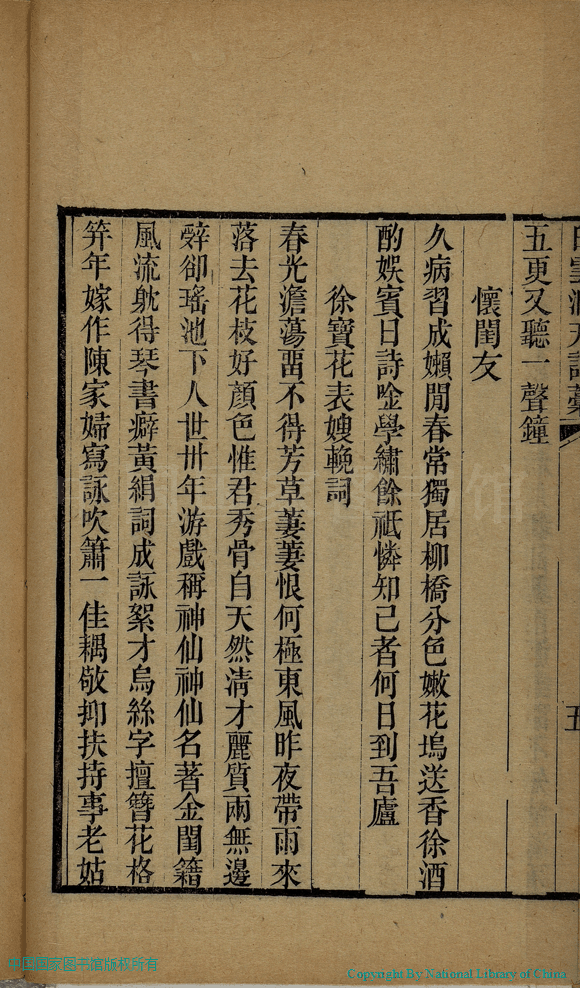 五更又聽一聲鐘
懷閨友
久病習成嬾閒春常獨居柳橋分色嫩花塢送香徐酒
酌娛賓日詩唫學繡餘祗憐知己者何日到吾廬
徐寶花表嫂輓詞
春光澹蕩畱不得芳草萋萋恨何極東風昨夜帶雨來
落去花枝好顏色惟君秀骨自天然淸才麗質兩無邊
辭卻瑤池下人世卅年游戲稱神仙神仙名著金閨籍
風流躭得琴書癖黃絹詞成詠絮才烏絲字擅簪花格
笄年嫁作陳家婦寫詠吹簫一佳耦敬抑扶持事老姑
五
国家图书馆版权所有
Copyright By National Library of China